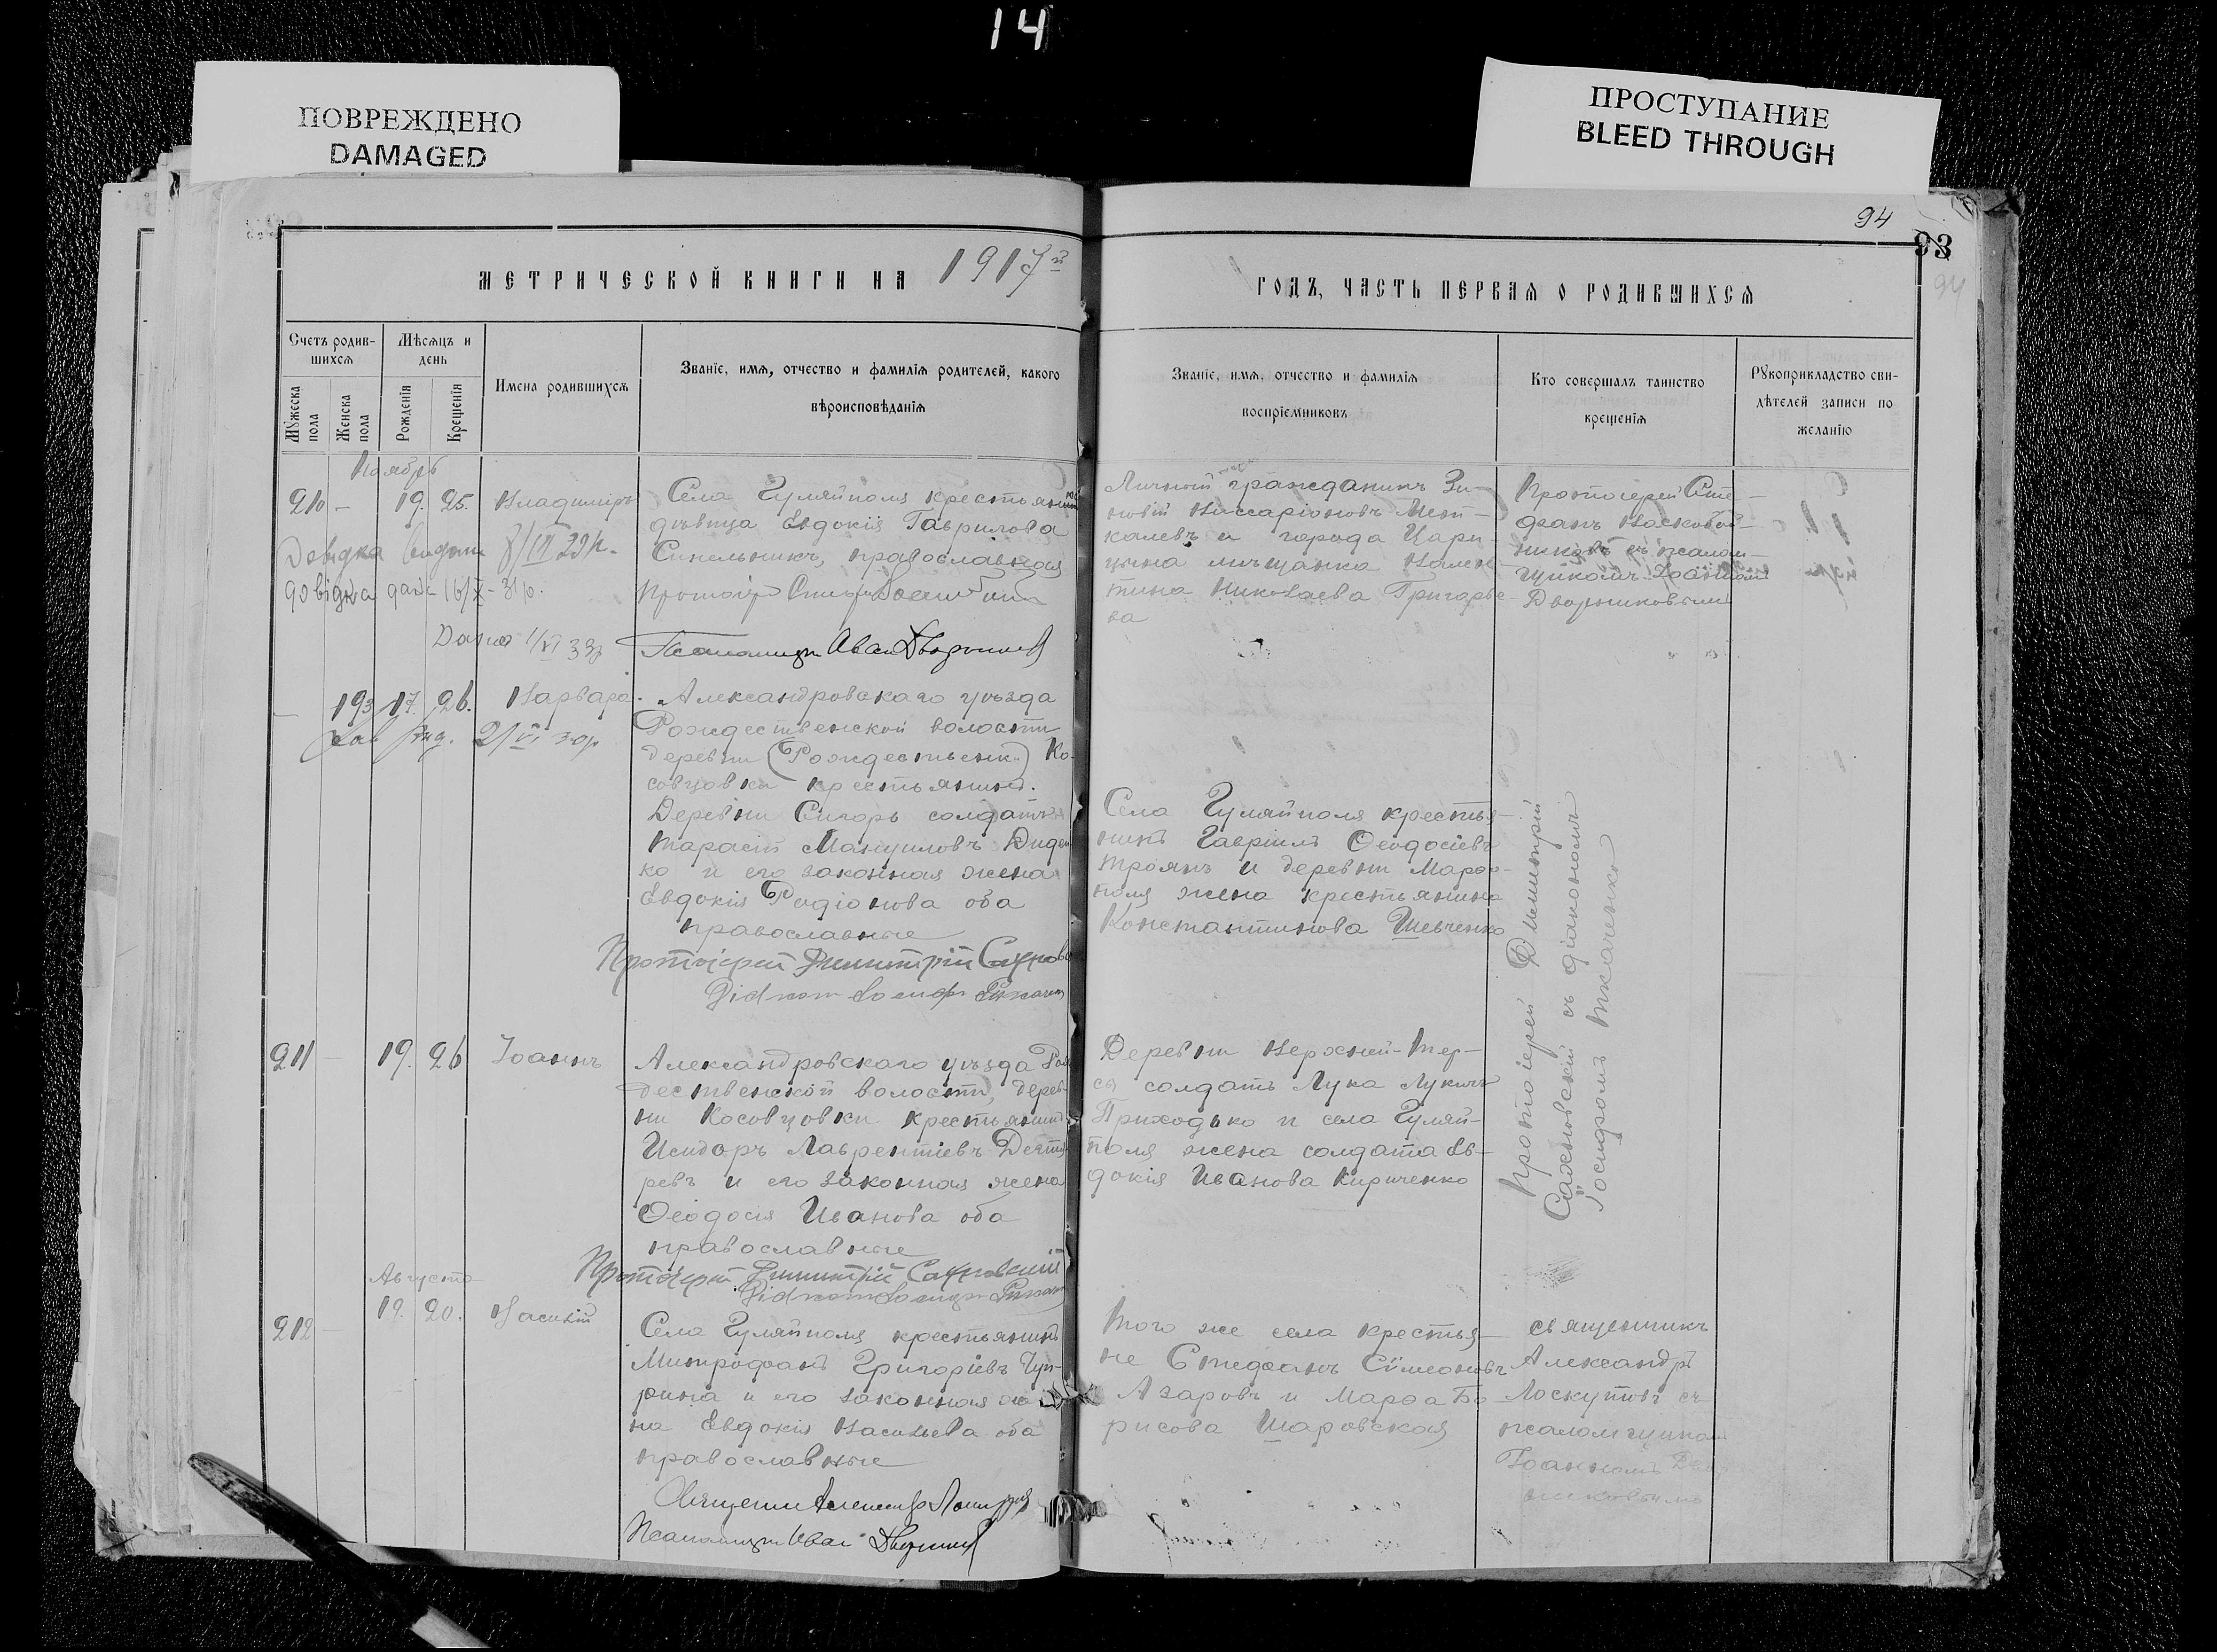 14
ПОВРЕЖДЕНО
DAMAGED
ПРОСТУПАНИЕ
BLEED THROUGH
94
93
94
МЕТРИЧЕСКОЙ КНИГИ НА 1917й
ГОДЪ, ЧАСТЬ ПЕРВАЯ О РОДИВШИХСЯ
Счетъ родив-
шихся
Мужеска пола
Женска пола
Мѣсяцъ и
день
Рожденія
Крещенія
Имена родившихся
Званіе, имя, отчество и фамилія родителей, какого
вѣроисповѣданія
Званіе, имя, отчество и фамилія
воспріемниковъ
Кто совершалъ таинство
крещенія
Рукоприкладство сви-
дѣтелей записи по
желанію
Ноябрь
210 - 19. 25. Владиміръ
Села Гуляйполя крестьянск
дѣвица Евдокія Гаврилова
Синельникъ, православная
Довідка видана 8/III 29р.
довідка дана 16/X - 31р.
Дана 1/VI 33р
Псаломщ Иван Дворников
Личный гражданинъ Зи-
новій Виссаріоновъ Мен-
калевъ и города Цари-
цына мѣщанка Вален-
тина Николаева Григорье-
ва
Протоіерей Сте-
фанъ Воскобой-
никовъ съ псалом-
щикомъ Іоанномъ
Дворниковымъ
- 193 17. 26. Варвара
2/VI 30р
Александровскаго уѣзда
Рождественской волости
деревни (Рождественк.) Ко-
совцовки крестьянинъ.
Деревни Сигорь солдатъ
Тарасій Мануиловъ Диден
ко и его законная жена
Евдокія Родіонова оба
православные
Протоіерей Димитрій Сахнов
Діакон Іосиф Ткачен
Села Гуляйполя крестья-
нинъ Гавріилъ Ѳеодосіевъ
Троянъ и деревни Марфо-
поля жена крестьянина
Константинова Шевченко
Протоіерей Димитрій
Сахновскій съ діакономъ
Іосифомъ Ткаченко
211 - 19. 26 Іоаннъ
Александровскаго уѣзда Рож
дественской волости, дерев-
ни Косовцовки крестьянинъ
Исидоръ Лаврентіевъ Дегтя
ревъ и его законная жена
Ѳеодосія Иванова оба
православные
Протоіерей Димитрій Сахновский
Діакон Іосиф Ткачен
Деревни Верхней-Тер-
сы солдатъ Лука Лукичъ
Приходько и села Гуляй-
поля жена солдата Ев-
докія Иванова Кириченко
Августа
212 - 19. 20. Василій
Села Гуляйполя крестьянинъ
Митрофанъ Григоріевъ Чуп-
рина и его законная же-
на Евдокія Васильева оба
православные
Священник Александр Лоскутов
Псаломщик Иван Дворников
Того же села крестья-
не Стефанъ Сѵмеоновъ
Азаровъ и Марѳа Бо-
рисова Шаровская
священникъ
Александръ
Лоскутовъ съ
псаломщикомъ
Іоанномъ Двор
никовымъ